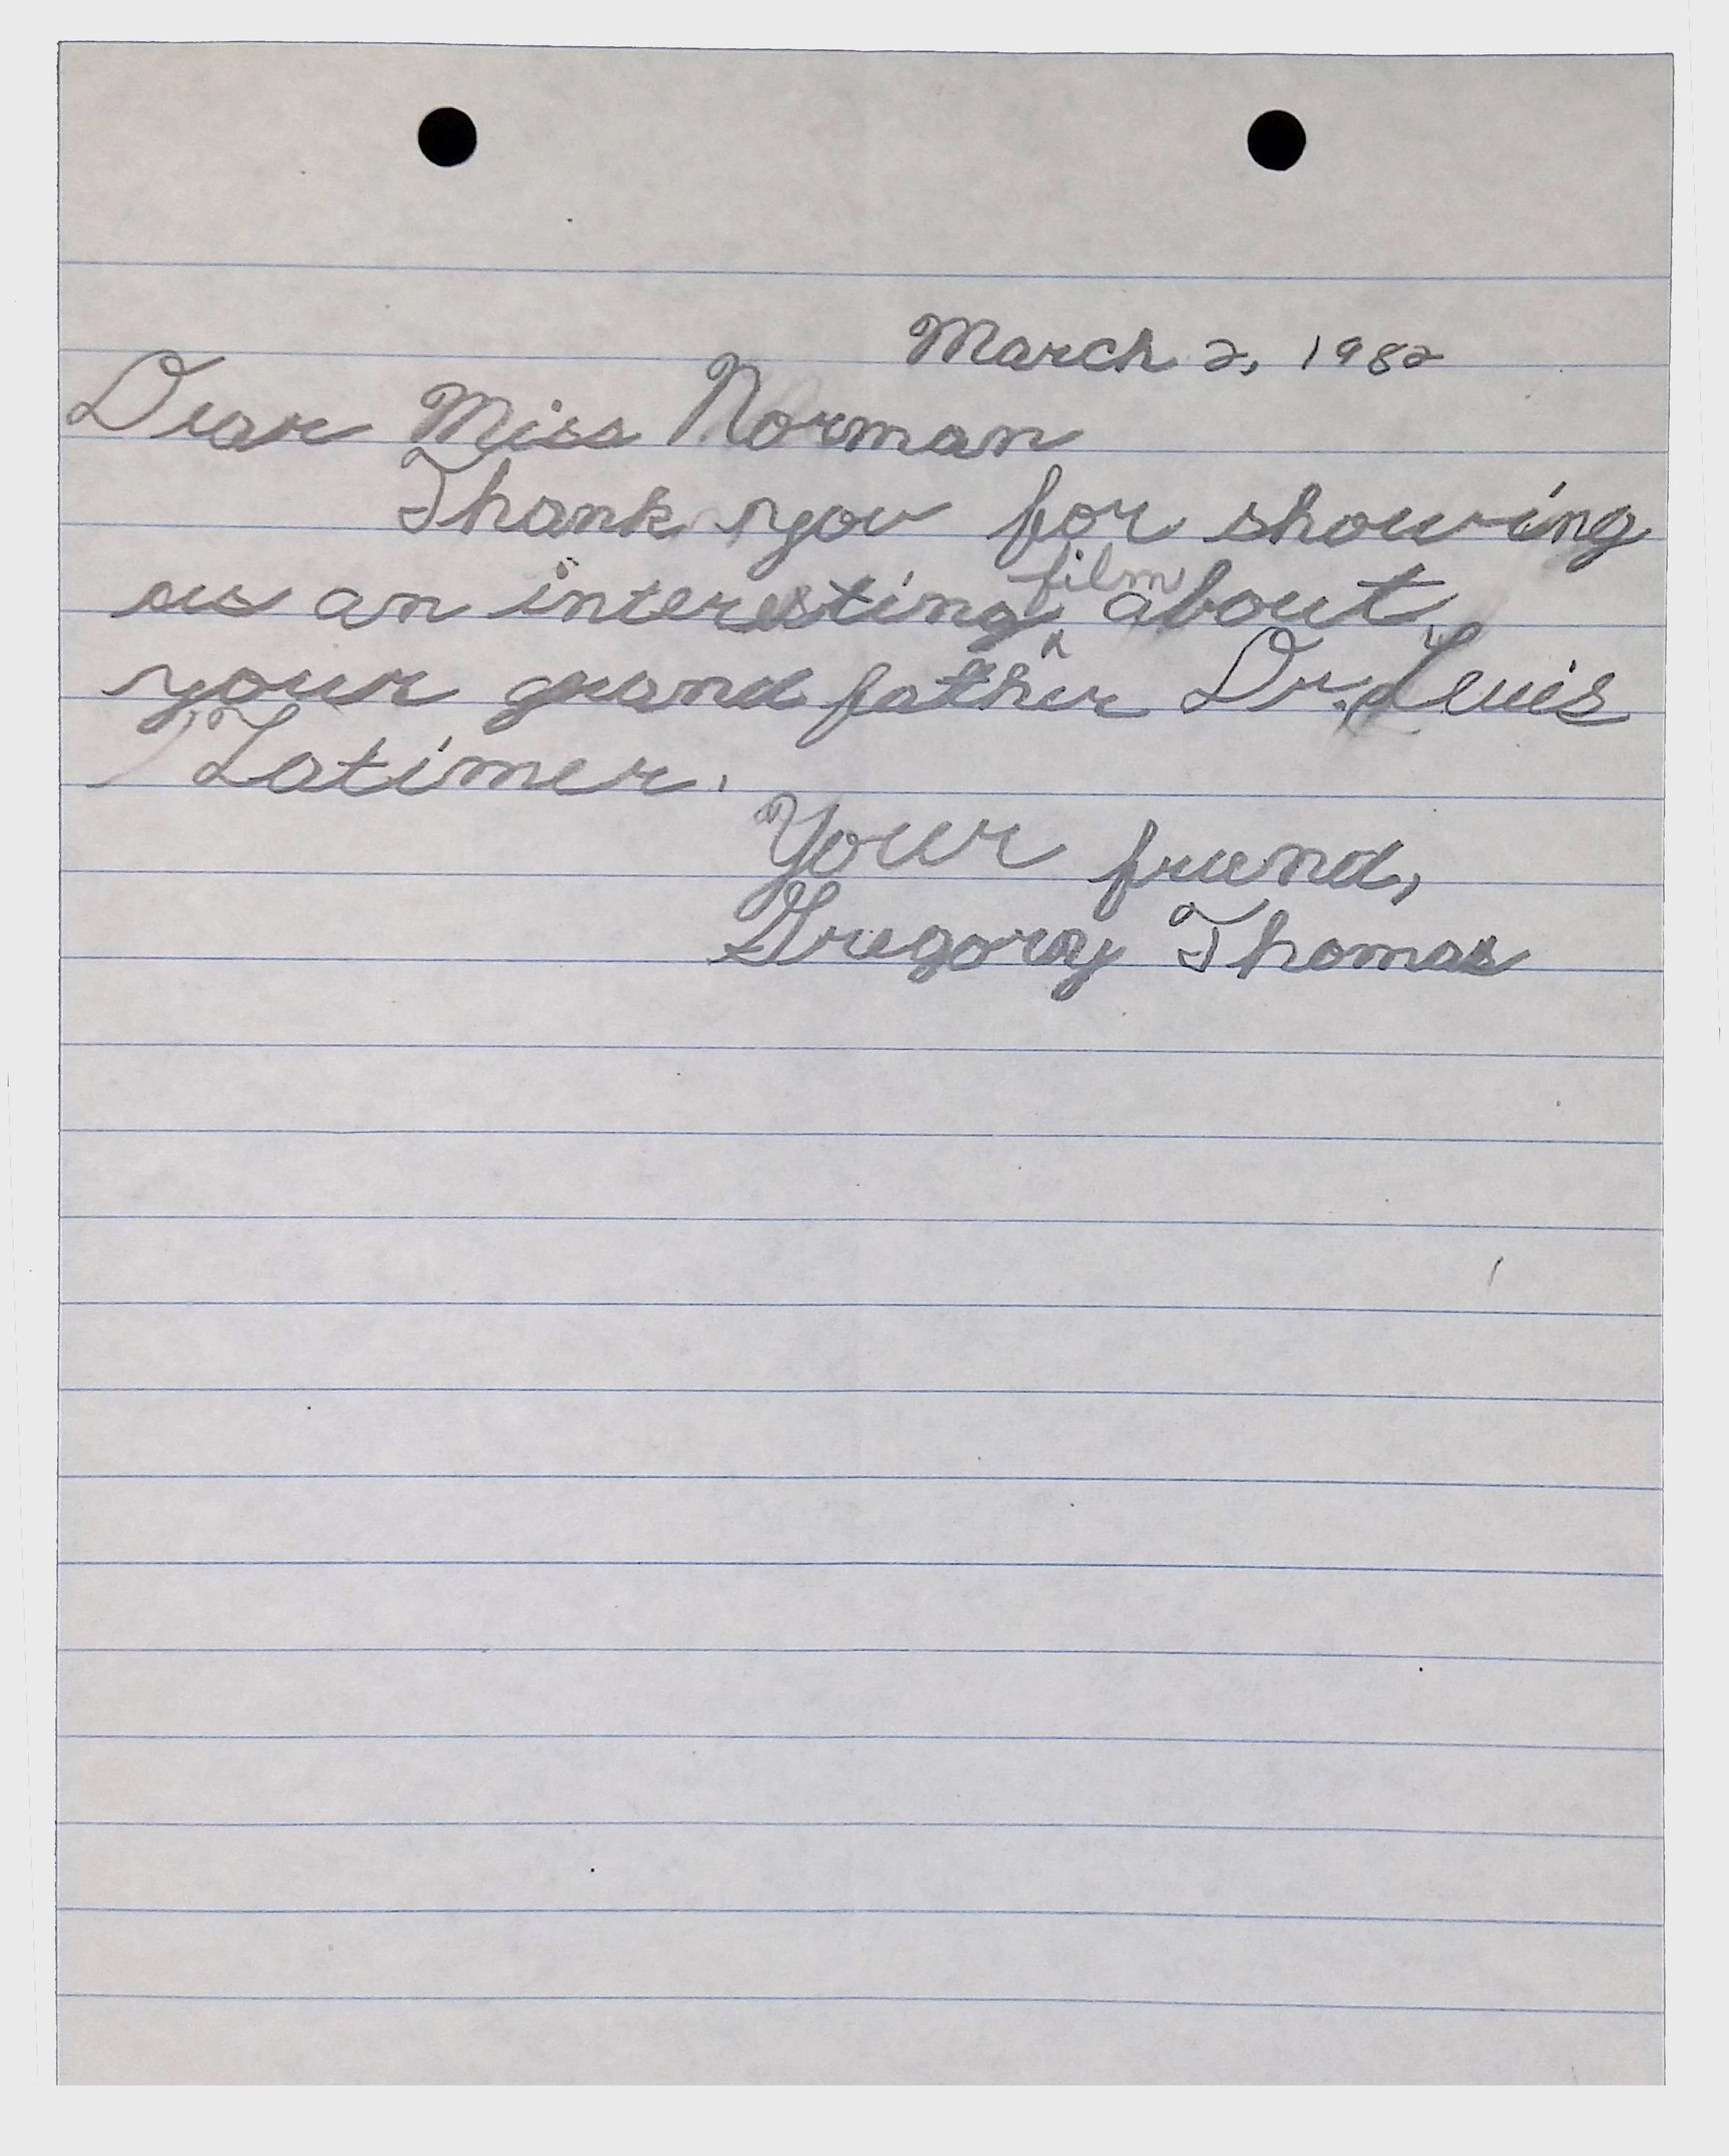 March 2, 1982
Dear Miss Norman
Thank you for showing
us an interesting film about
your grand father Dr. Lewis
Latimer.
Your friend,
Gregory Thomas